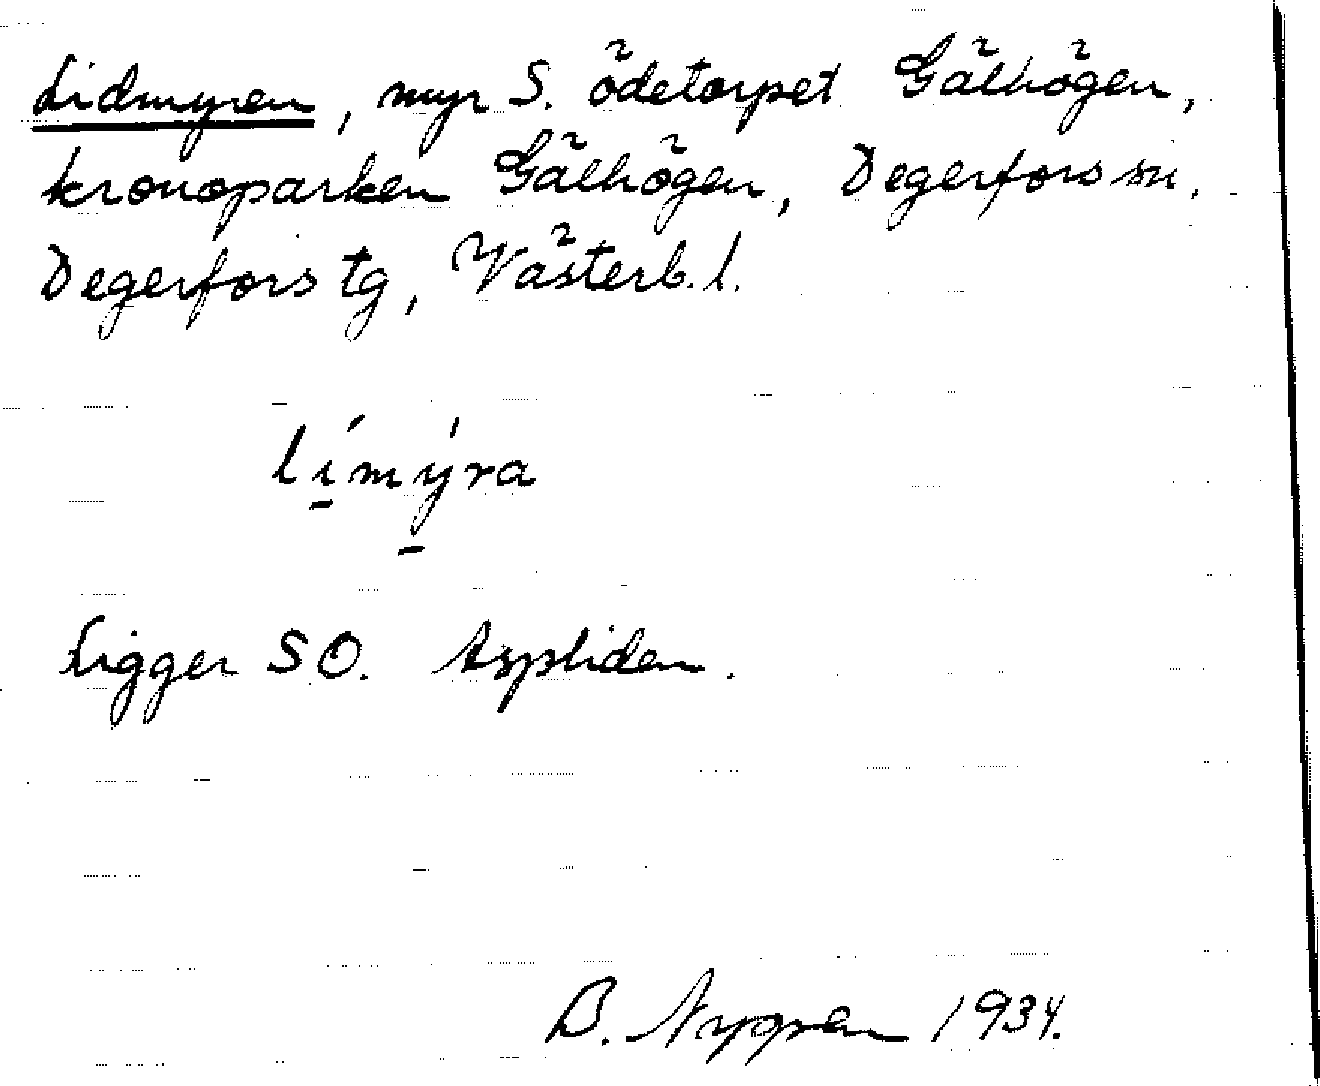 Lidmyren, myr S. ödetorpet Gälhögen,
kronoparken Gälhögen, Degerfors sn.
Degerfors tg, Västerb. l.
lí̱mý̱ra
Ligger SO. Aspliden.
B. Nygren 1934.